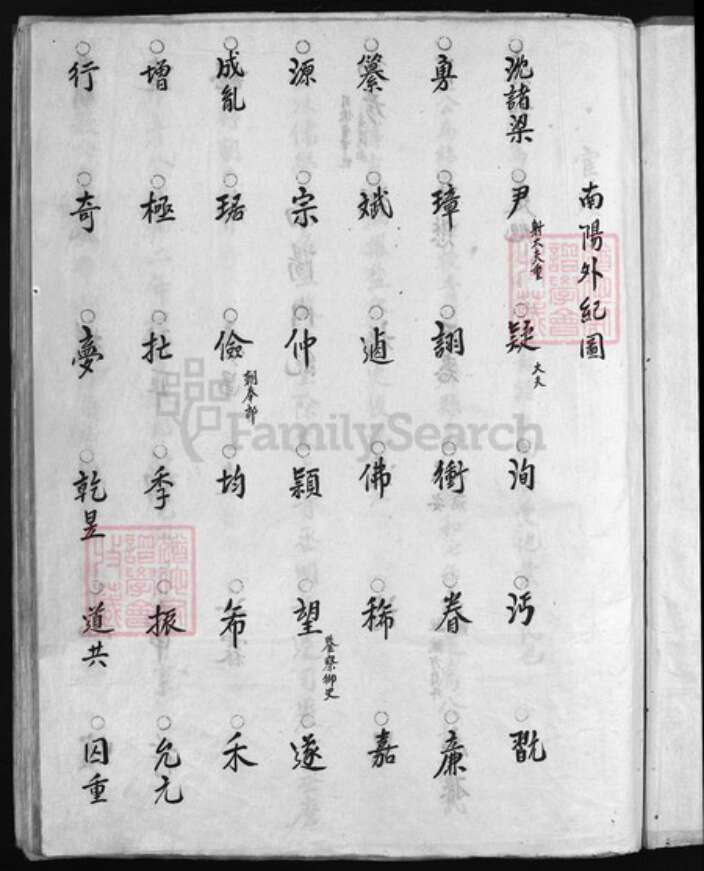 南陽外紀圖
○沈諸梁 ○尹 射大夫重 ○疑 大夫 ○洵 ○沔 ○翫
○勇 ○璋 ○詡 ○衝 ○眷 ○廉
○斌 ○佛 ○稀 ○嘉
○源 ○宗 ○仲 ○穎 ○望 監察御史 ○遂
○成亂 ○琚 ○儉 ○均 ○希 ○禾
○增 ○極 ○季 ○振 ○允元
○行 ○奇 ○夢 ○乾昱 ○道共 ○因重
FamilySearch